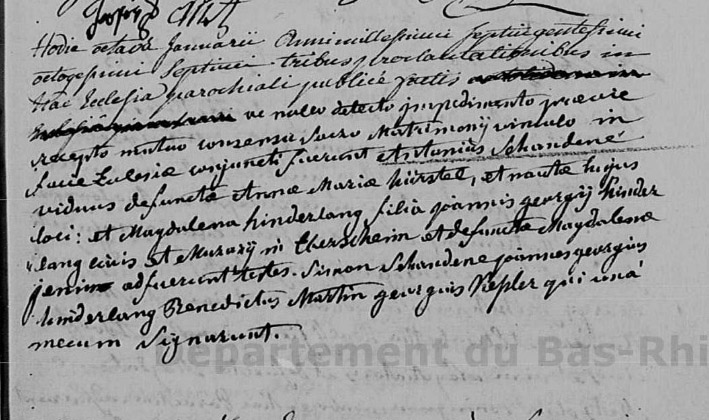 Hodie octava Januarii Anni millesimi septingentesimi
octogesimi septimi tribus proclamationibus in
Hac Ecclesia parochiali publice factis
ac nullo detecto impedimento præ
recepto mutuo consensu sacro Matrimonij vinculo in
facie Eclesiæ conjuncti fuerunt Antonius Schandené
viduus defunctæ Annæ Mariæ hürstel, et nauta hujus
loci: et Magdalena hinderlang filia joannis georgij hinder
lang civis et Murarij in Eberscheim et defunctæ Magdalenæ
adfuerunt testes. Simon Schandene joannes georgius
hinderlang Benedictus Martin georgius Kepler qui unà
mecum signarunt.
Département du Bas-Rhi